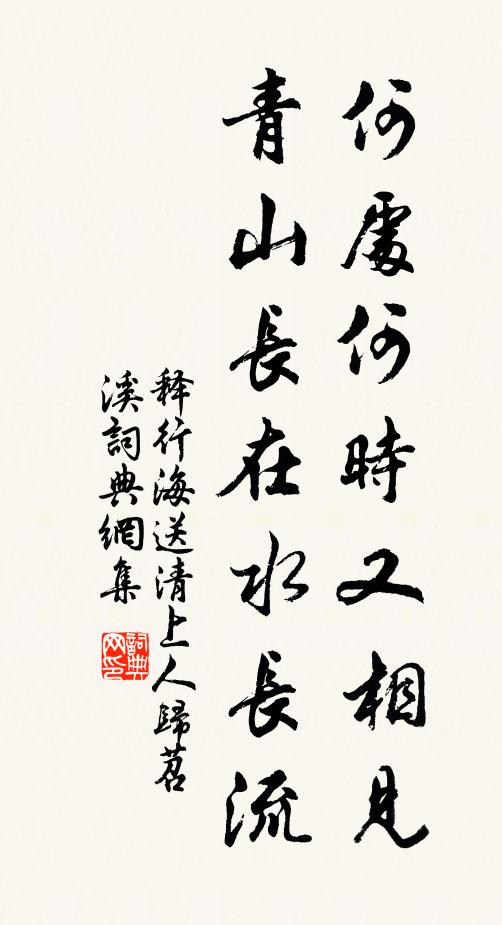 何處何時又相見
青山長在水長流
释行海送清上人歸苕
溪詞典網集
詞典网印